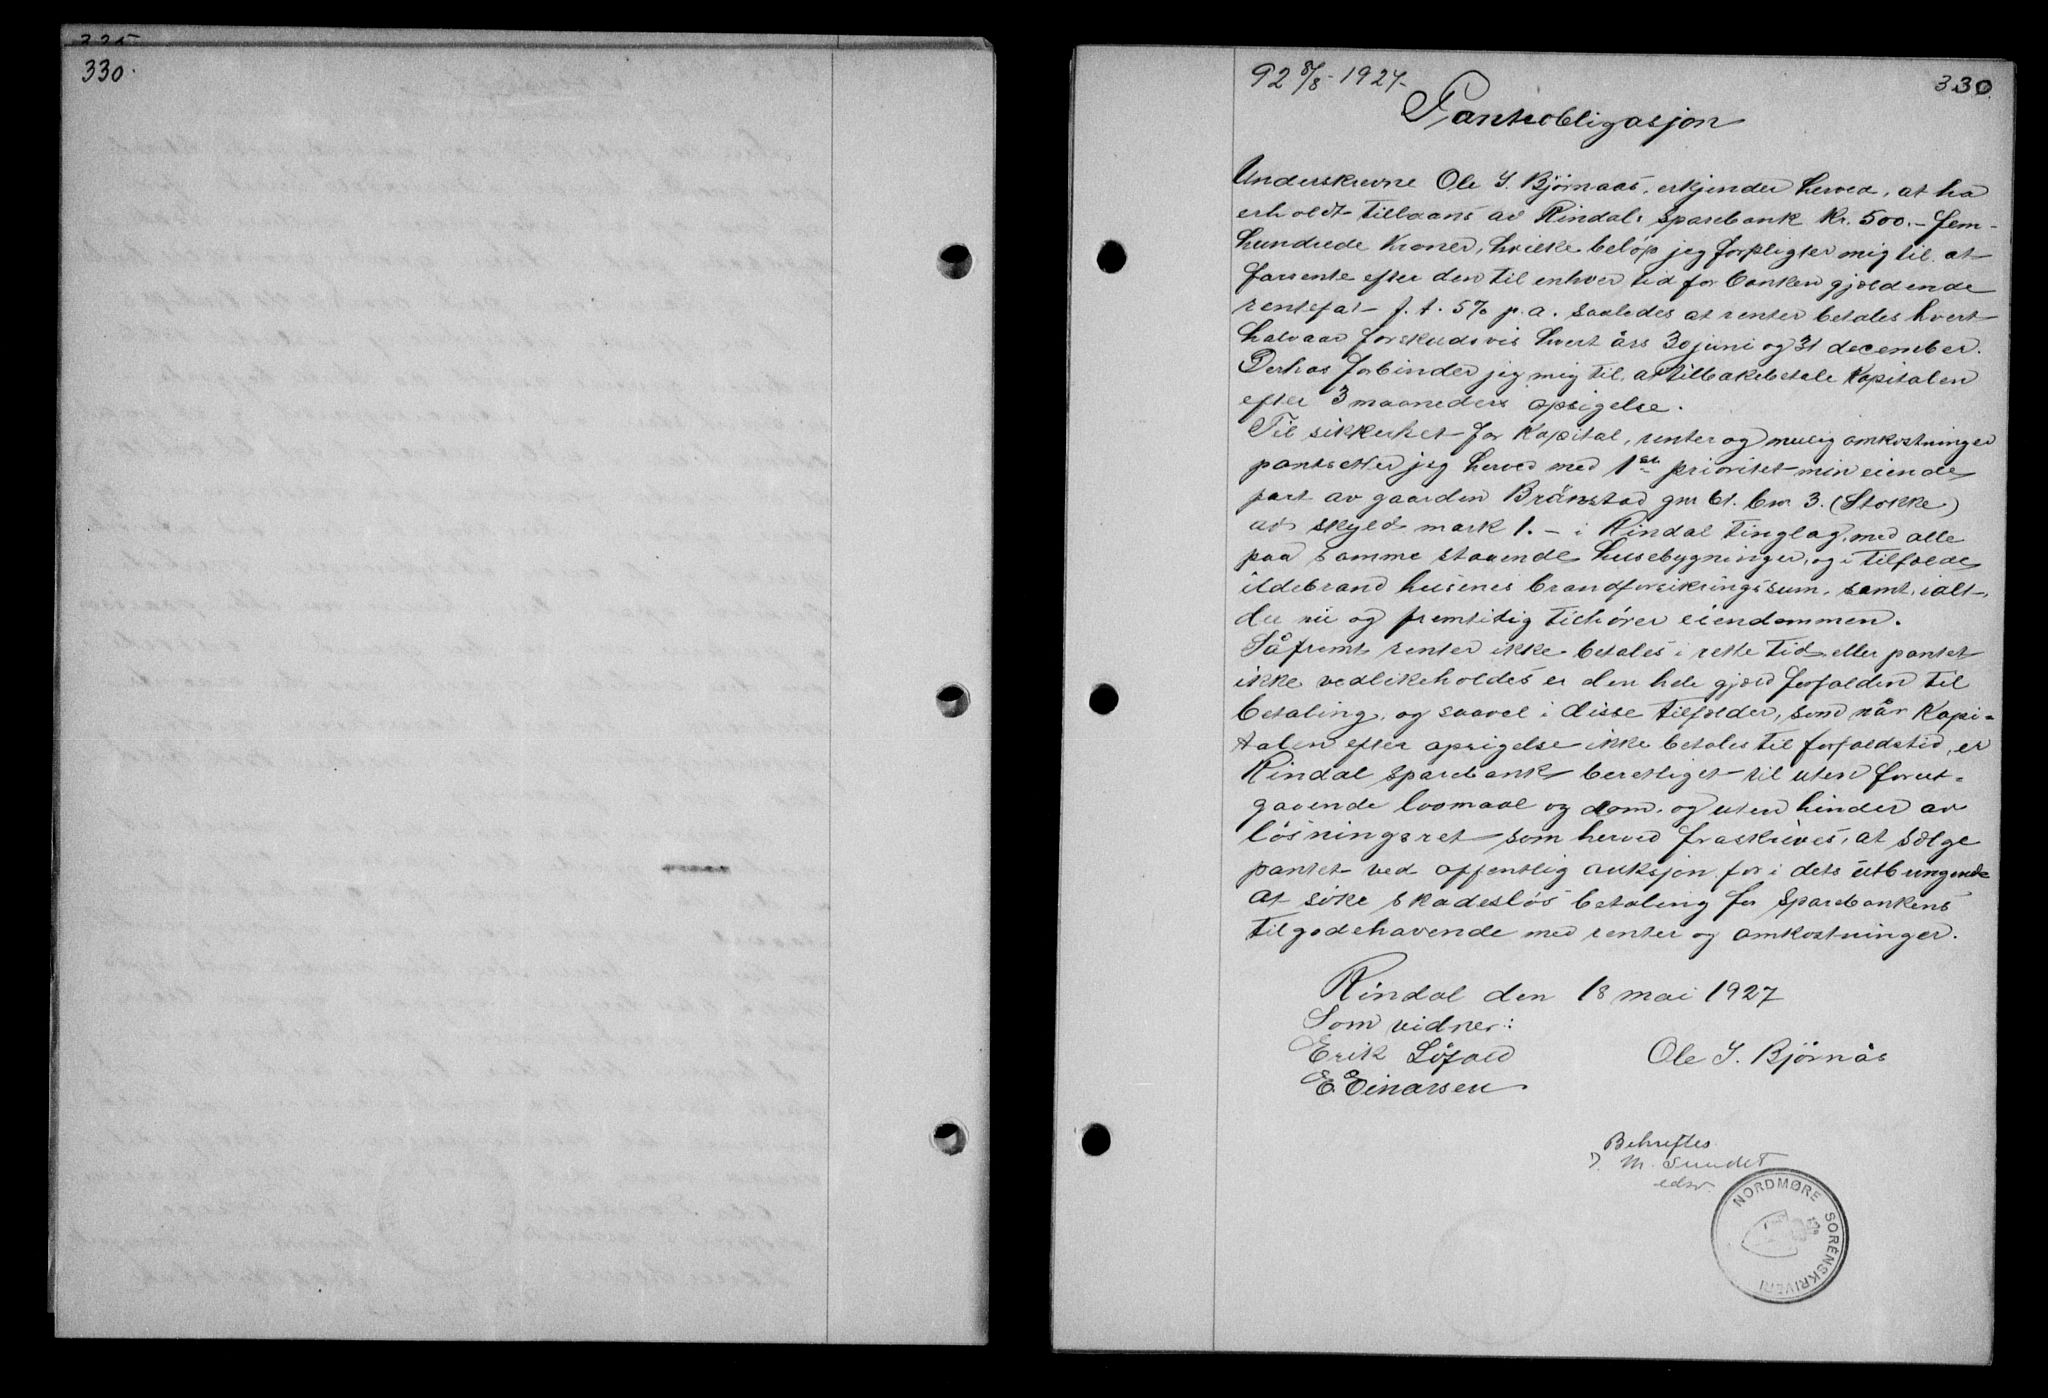 325
330.
92 8/8-1927-
330
Panteobligasjon
Underskrevne Ole J. Bjørnaas, erkjender herved, at ha
erholdt tillaans av Rindals Sparebank Kr. 500.- fem-
hundrede Kroner, hvilke beløp jeg forpligter mig til at
forrente efter den til enhver tid for banken gjældende
rentefot f.t. 5% p.a. saaledes at renter betales hvert
halvaar forskudsvis hvert års 30 juni og 31 december.
Derhos forbinder jeg mig til at tilbakebetale Kapitalen
efter 3 maaneders opsigelse.
Til sikkerhet for Kapital, renter og mulig omkostninger
pantsetter jeg herved med 1ste prioritet min eiende
part av gaarden Brånstad gnr 61. bnr 3. (Stokke)
av skyld mark 1.- i Rindal tinglag, med alle
paa samme staaende husebygninger, og i tilfælde
ildebrand husenes brandforsikringssum, samt, i alt,
der nu og fremtidig tilhører eiendommen.
Såfremt renter ikke betales i rette tid eller pantet
ikke vedlikeholdes er den hele gjæld forfalden til
betaling, og saavel i disse tilfælder, som når Kapi-
talen efter opsigelse ikke betales til forfaldstid, er
Rindal Sparebank berettiget til uten forut-
gaaende lovmaal og dom, og uten hinder av
løsningsret som herved fraskrives, at sælge
pantet ved offentlig auksjon for i dets utbringende
at søke skadesløs betaling for Sparebankens
tilgodehavende med renter og omkostninger.
Rindal den 18 mai 1927
Som vidner:
Erik Løfald
Ole J. Bjørnås
E. Einarsen
Bekreftes
J. M. Sundet
edsv.
NORDMØRE SORENSKRIVERI